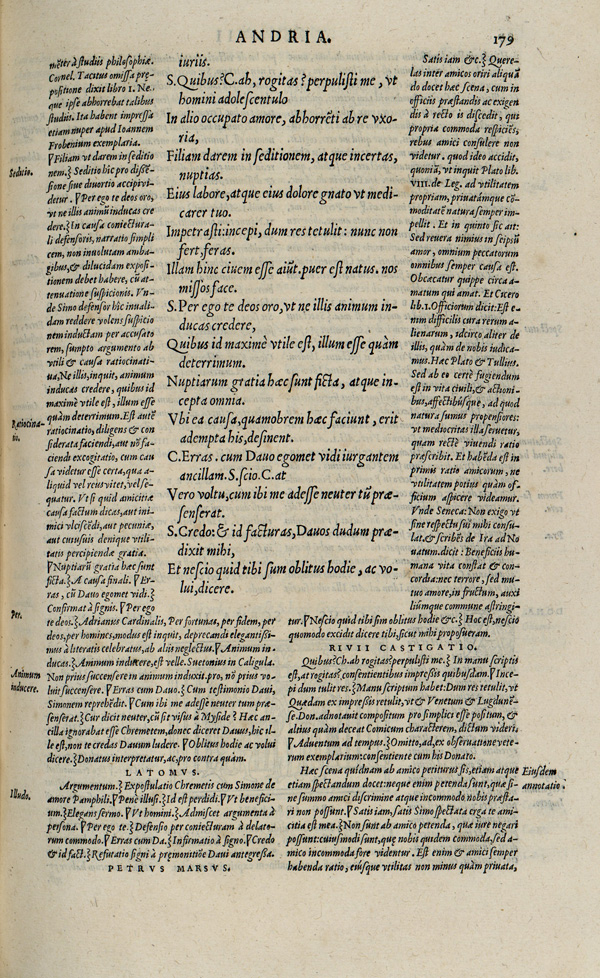 ANDRIA. 179
nẽter à studiis philosophiæ.
Cornel. Tacitus omissa præ-
positione dixit libro 1. Ne-
que ipse abhorrebat talibus
studiis. Ita habent impressa
etiam nuper apud Ioannem
Frobenium exemplaria.
Filiam vt darem in seditio
nem.} Seditio hic pro dissẽ-
sione siue diuortio accipivi-
detur. Per ego te deos oro,
vt ne illis animũ inducas cre
dere.} In causa coniectura-
li defensoris, narratio simpli
cem, non inuolutam amba-
gibus, & dilucidam exposi-
tionem debet habere, cũ at-
tenuatione suspicionis. Vn-
de Simo defensor hic inuali-
dam reddere volens suspicio
nem inductam per accusato
rem, sumpto argumento ab
vtili & causa ratiocinati-
ua, Ne illis, inquit, animum
inducas credere, quibus id
maximè vtile est, illum esse
quàm deterrimum. Est autẽ
ratiocinatio, diligens & con
siderata faciendi, aut nõ fa-
ciendi excogitatio, cum cau
sa videtur esse certa, qua a-
liquid vel reus vitet, vel se-
quatur. Vt si quid amicitiæ
causa factum dicas, aut ini-
mici vlciscẽdi, aut pecuniæ,
aut cuiusuis denique vtili-
tatis percipiendæ gratia.
Nuptiarũ gratia hæc sunt
ficta.} A causa finali. Er-
ras, cũ Dauo egomet vidi.}
Confirmat à signis. Per ego
Seditio.
Ratiocina-
tio.
iuriis.
S. Quibus? C. ah, rogitas? perpulisti me, vt
homini adolescentulo
In alio occupato amore, abhorrẽti ab re vxo-
ria,
Filiam darem in seditionem, atque incertas,
nuptias.
Eius labore, atque eius dolore gnato vt medi-
carer tuo.
Impetrasti: incepi, dum res tetulit: nunc non
fert, feras.
Illam hinc ciuem esse aiũt. puer est natus. nos
missos face.
S. Per ego te deos oro, vt ne illis animum in-
ducas credere,
Quibus id maximè vtile est, illum esse quàm
deterrimum.
Nuptiarum gratia hæc sunt ficta, atque in-
cepta omnia.
Vbi ea causa, quamobrem hæc faciunt, erit
adempta his, desinent.
C. Erras. cum Dauo egomet vidi iurgantem
ancillam. S. scio. C. at
Vero voltu, cum ibi me adesse neuter tũ præ-
senserat.
S. Credo: & id facturas, Dauos dudum præ-
dixit mihi,
Et nescio quid tibi sum oblitus hodie, ac vo-
lui, dicere.
Satis iam &c.} Quere-
las inter amicos oriri aliquã
do docet hæc scena, cum in
officiis præstandis ac exigen
dis à recto is discedit, qui
propria commoda respiciẽs,
rebus amici consulere non
videtur. quod ideo accidit,
quoniã, vt inquit Plato lib.
VIII. de Leg. ad vtilitatem
propriam, priuatámque cõ-
moditatẽ natura semper im-
pellit. Et in quinto sic ait:
Sed reuera nimius in seipsũ
amor, omnium peccatorum
omnibus semper causa est.
Obcæcatur quippe circa a-
matum qui amat. Et Cicero
lib. 1. Officiorum dicit: Est e-
nim difficilis cura rerum a-
lienarum, idcirco aliter de
illis, quàm de nobis iudica-
mus. Hæc Plato & Tullius.
Sed ab eo certè fugiendum
est in vita ciuili, & actioni-
bus, affectibúsque, ad quod
natura sumus propensiores:
vt mediocritas illa seruetur,
quam rectè viuendi ratio
præscribit. Et habẽda est in
primis ratio amicorum, ne
vtilitatem potius quàm of-
ficium aspicere videamur.
Vnde Seneca: Non exigo vt
sine respectu sui mihi consu-
lat. & scribẽs de Ira ad No
uatum. dicit: Beneficiis hu-
mana vita constat & con-
cordia: nec terrore, sed mu-
tuo amore, in fructum, auxi
liúmque commune astringi-
te deos.} Adrianus Cardinalis, Per fortunas, per fidem, per
deos, per homines, modus est inquit, deprecandi elegantissi-
mus à literatis celebratus, ab aliis neglectus. Animum in-
ducas.} Animum inducere, est velle. Suetonius in Caligula.
Non prius successere in animum induxit. pro, nõ prius vo-
luit successere. Erras cum Dauo.} Cum testimonio Daui,
Simonem reprehẽdit. Cum ibi me adesse neuter tum præ-
senserat.} Cur dicit neuter, cũ sit visus à Myside? Hæc an-
cilla ignorabat esse Chremetem, donec diceret Dauus, hic il-
le est, non te credas Dauum ludere. Oblitus hodie ac volui
dicere.} Donatus interpretatur, ac, pro contra quàm.
LATOMVS.
Argumentum.} Expostulatio Chremetis cum Simone de
amore Pamphili. Penè illusi.} Id est perdidi. Vt benefici-
um.} Elegans sermo. Vt homini.} Admiscet argumenta à
persona. Per ego te.} Defensio per coniecturam à delato-
rum commodo. Erras cum Da.} Infirmatio à signo. Credo
& id fact.} Refutatio signi à præmonitiõe Daui antegressa.
PETRVS MARSVS.
Per.
Animum
inducere.
Illudo.
tur. Nescio quid tibi sim oblitus hodie &c.} Hoc est, nescio
quomodo excidit dicere tibi, sicut mihi proposueram.
RIVII CASTIGATIO.
Quibus? Ch. ah rogitas? perpulisti me.} In manu scriptis
est, at rogitas? consentientibus impressis quibusdam. Ince-
pi dum tulit res.} Manu scriptum habet: Dum res tetulit, vt
Quædam ex impressis retulit, vt & Venetum & Lugdunẽ-
se. Don. adnotauit compositum pro simplici esse positum, &
altius quàm deceat Comicum characterem, dictum videri.
Aduentum ad tempus.} Omitto, ad, ex obseruatione vete-
rum exemplarium: consentiente cum his Donato.
Hæc scena quidnam ab amico periturus sis, etiam atque
etiam spectandum docet: neque enim petenda sunt, quæ si-
ne summo amici discrimine atque incommodo nobis præsta-
ri non possunt. Satis iam, satis Simo spectata erga te ami-
citia est mea.} Non sunt ab amico petenda, quæ iure negari
possunt: cuiusmodi sunt, quæ nobis quidem commoda, sed a-
mico incommoda fore videntur. Est enim & amici semper
habenda ratio, eiúsque vtilitas non minus quàm priuata,
Eiusdem
annotatio.